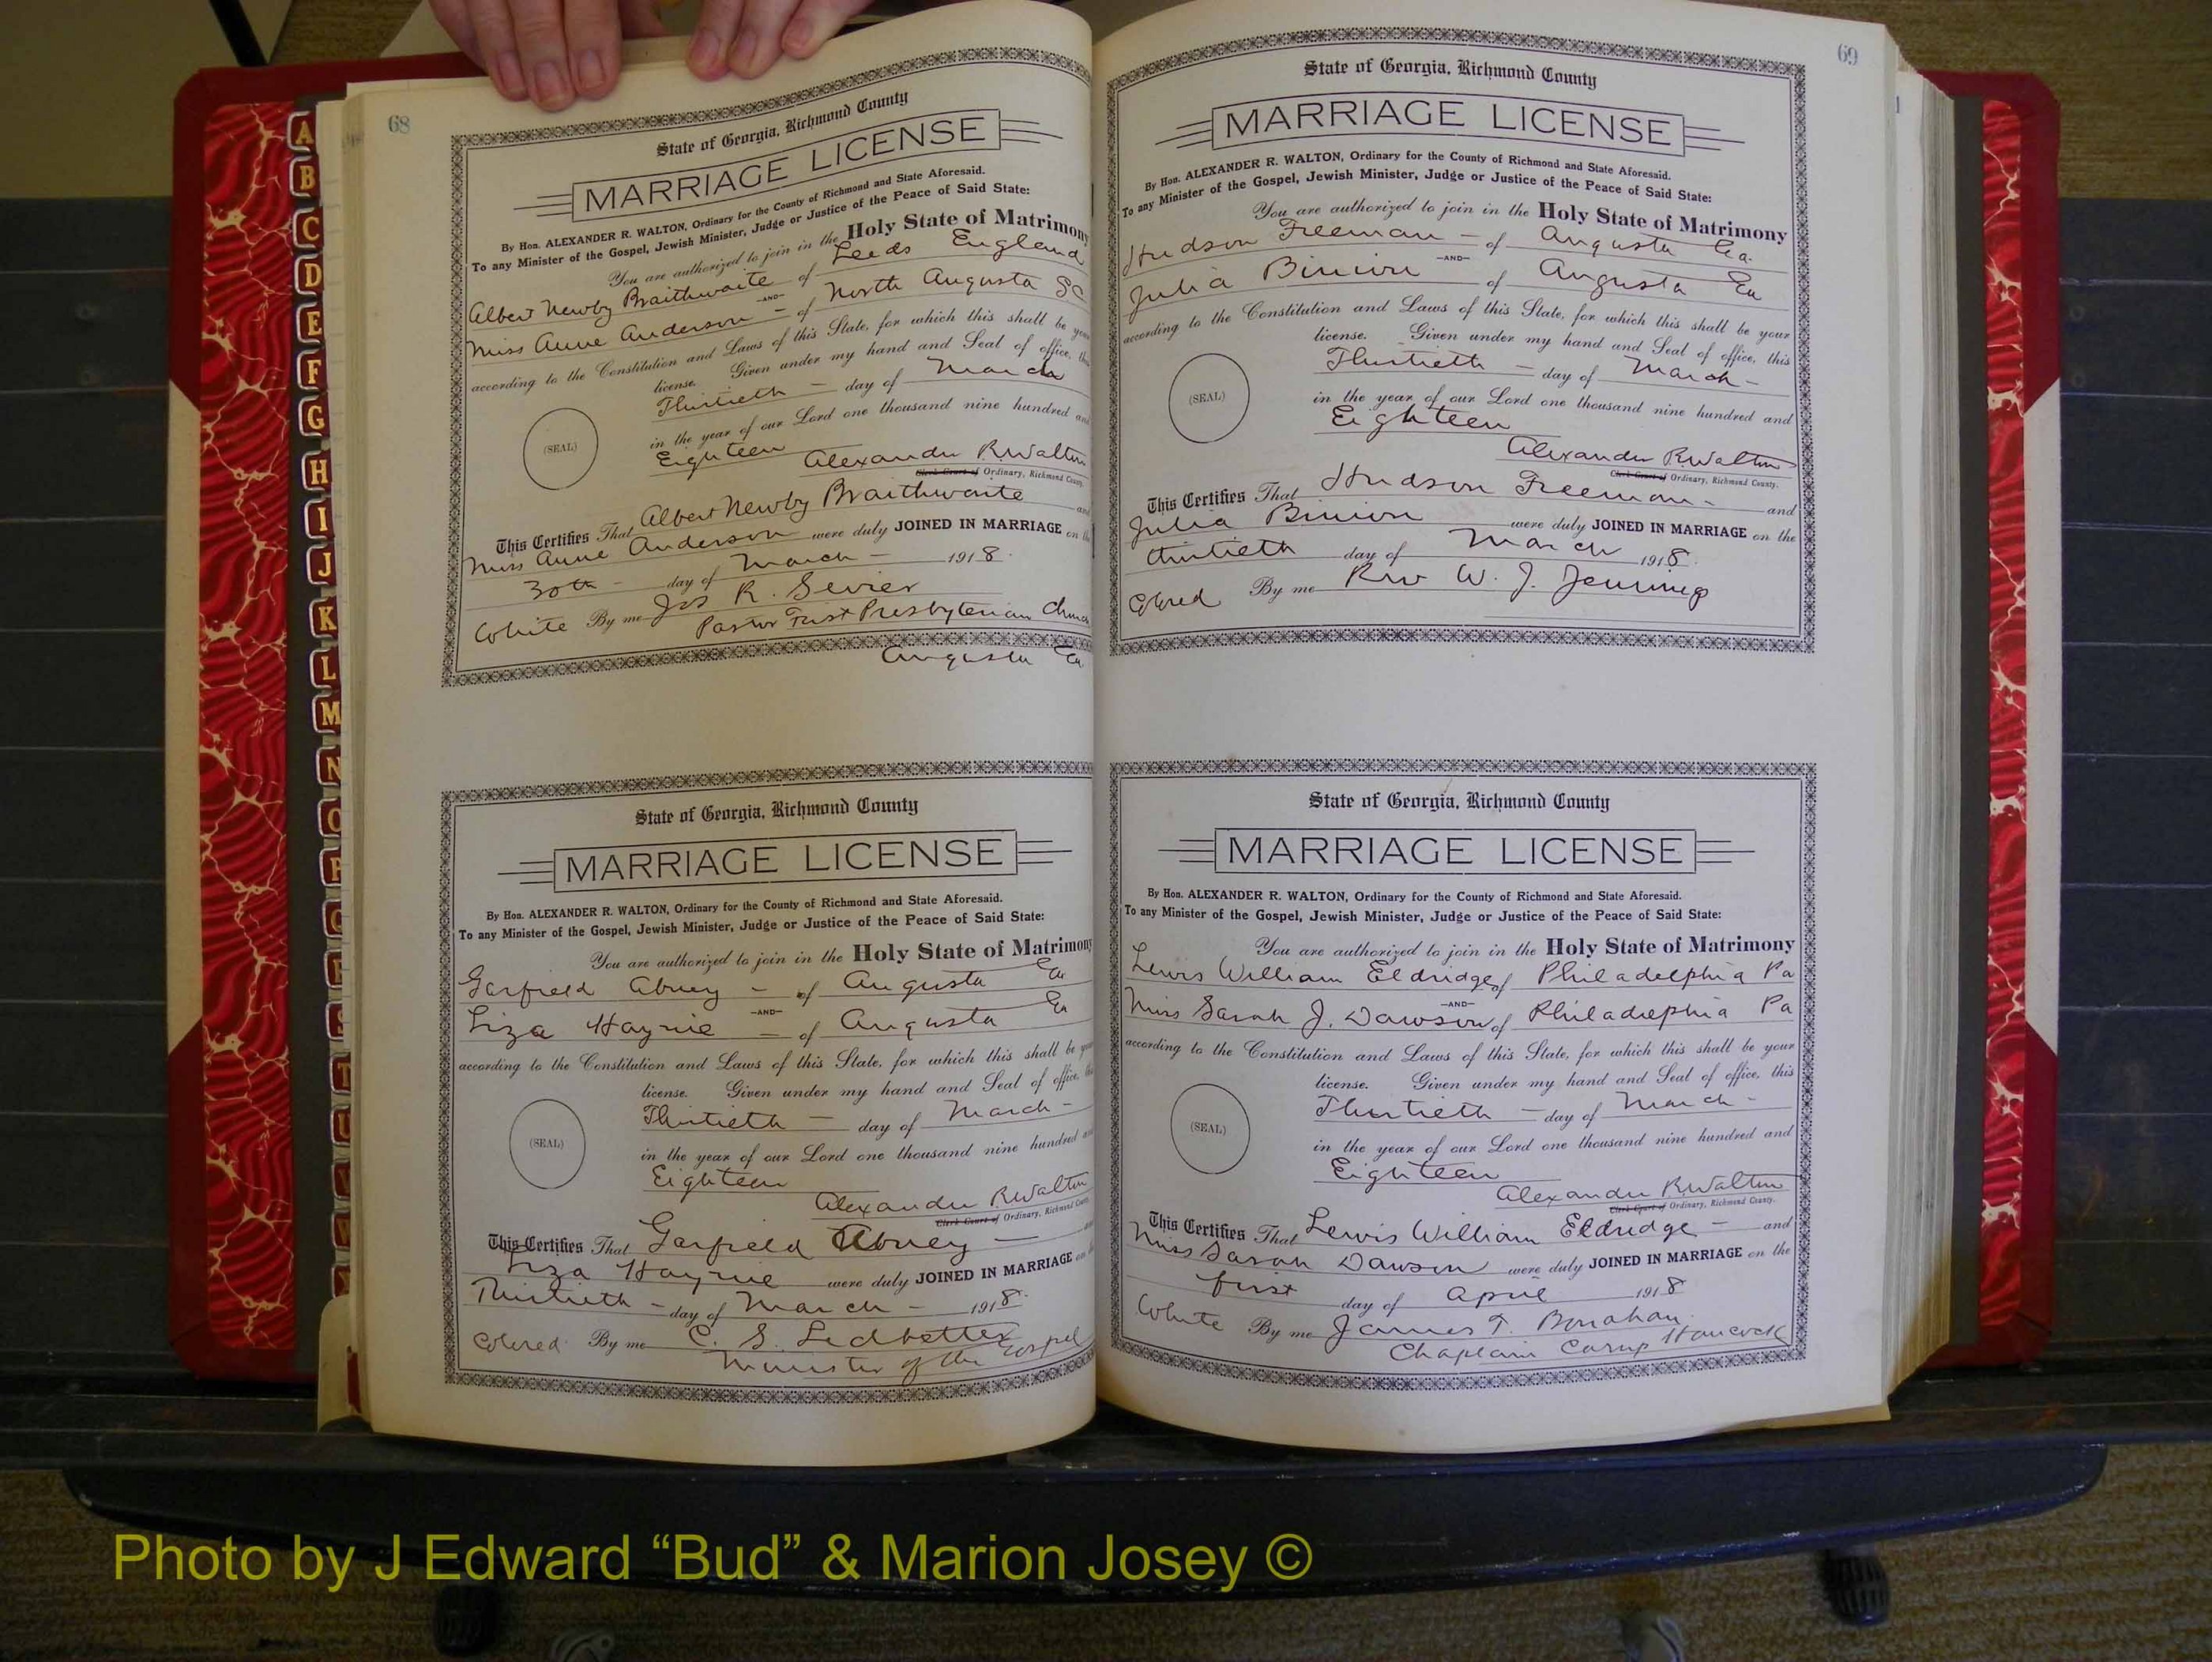 68
State of Georgia, Richmond County
MARRIAGE LICENSE
By Hon. ALEXANDER R. WALTON, Ordinary for the County of Richmond and State Aforesaid.
To any Minister of the Gospel, Jewish Minister, Judge or Justice of the Peace of Said State:
You are authorized to join in the Holy State of Matrimony
Albert Newby Braithwaite of Leeds England
—AND—
Miss Anne Anderson — of North Augusta SC
according to the Constitution and Laws of this State, for which this shall be your
license. Given under my hand and Seal of office, this
Thirtieth — day of March
(SEAL)
in the year of our Lord one thousand nine hundred and
Eighteen
Alexander R. Walton
Clerk Court of Ordinary, Richmond County.
This Certifies That Albert Newby Braithwaite and
Miss Anne Anderson were duly JOINED IN MARRIAGE on the
30th — day of March — 1918.
White By me Jos R. Sevier
Pastor First Presbyterian Church
Augusta Ga
State of Georgia, Richmond County
MARRIAGE LICENSE
By Hon. ALEXANDER R. WALTON, Ordinary for the County of Richmond and State Aforesaid.
To any Minister of the Gospel, Jewish Minister, Judge or Justice of the Peace of Said State:
You are authorized to join in the Holy State of Matrimony
Garfield Abney — of Augusta Ga
—AND—
Liza Haynie — of Augusta Ga
according to the Constitution and Laws of this State, for which this shall be your
license. Given under my hand and Seal of office, this
Thirtieth — day of March —
(SEAL)
in the year of our Lord one thousand nine hundred and
Eighteen
Alexander R. Walton
Clerk Court of Ordinary, Richmond County.
This Certifies That Garfield Abney — and
Liza Haynie were duly JOINED IN MARRIAGE on the
Thirtieth — day of March — 1918.
Colored By me C. S. Ledbetter
Minister of the Gospel
69
State of Georgia, Richmond County
MARRIAGE LICENSE
By Hon. ALEXANDER R. WALTON, Ordinary for the County of Richmond and State Aforesaid.
To any Minister of the Gospel, Jewish Minister, Judge or Justice of the Peace of Said State:
You are authorized to join in the Holy State of Matrimony
Hudson Freeman — of Augusta Ga.
—AND—
Julia Binion of Augusta Ga
according to the Constitution and Laws of this State, for which this shall be your
license. Given under my hand and Seal of office, this
Thirtieth — day of March —
(SEAL)
in the year of our Lord one thousand nine hundred and
Eighteen
Alexander R. Walton
Clerk Court of Ordinary, Richmond County.
This Certifies That Hudson Freeman — and
Julia Binion were duly JOINED IN MARRIAGE on the
thirtieth day of March 1918.
Colored By me Rev W. J. Jennings
State of Georgia, Richmond County
MARRIAGE LICENSE
By Hon. ALEXANDER R. WALTON, Ordinary for the County of Richmond and State Aforesaid.
To any Minister of the Gospel, Jewish Minister, Judge or Justice of the Peace of Said State:
You are authorized to join in the Holy State of Matrimony
Lewis William Eldridge of Philadelphia Pa
—AND—
Miss Sarah J. Dawson of Philadelphia Pa
according to the Constitution and Laws of this State, for which this shall be your
license. Given under my hand and Seal of office, this
Thirtieth — day of March —
(SEAL)
in the year of our Lord one thousand nine hundred and
Eighteen
Alexander R. Walton
Clerk Court of Ordinary, Richmond County.
This Certifies That Lewis William Eldridge — and
Miss Sarah Dawson were duly JOINED IN MARRIAGE on the
first day of April 1918
White By me James T. Bonahan
Chaplain Camp Hancock
A
B
C
D
E
F
G
H
I
J
K
L
M
N
O
P
Q
R
S
T
U
V
W
Photo by J Edward “Bud” & Marion Josey ©